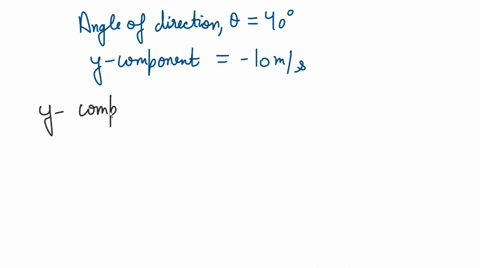 Angle of direction, θ = 40°
y-component = -10m/s
y- comp